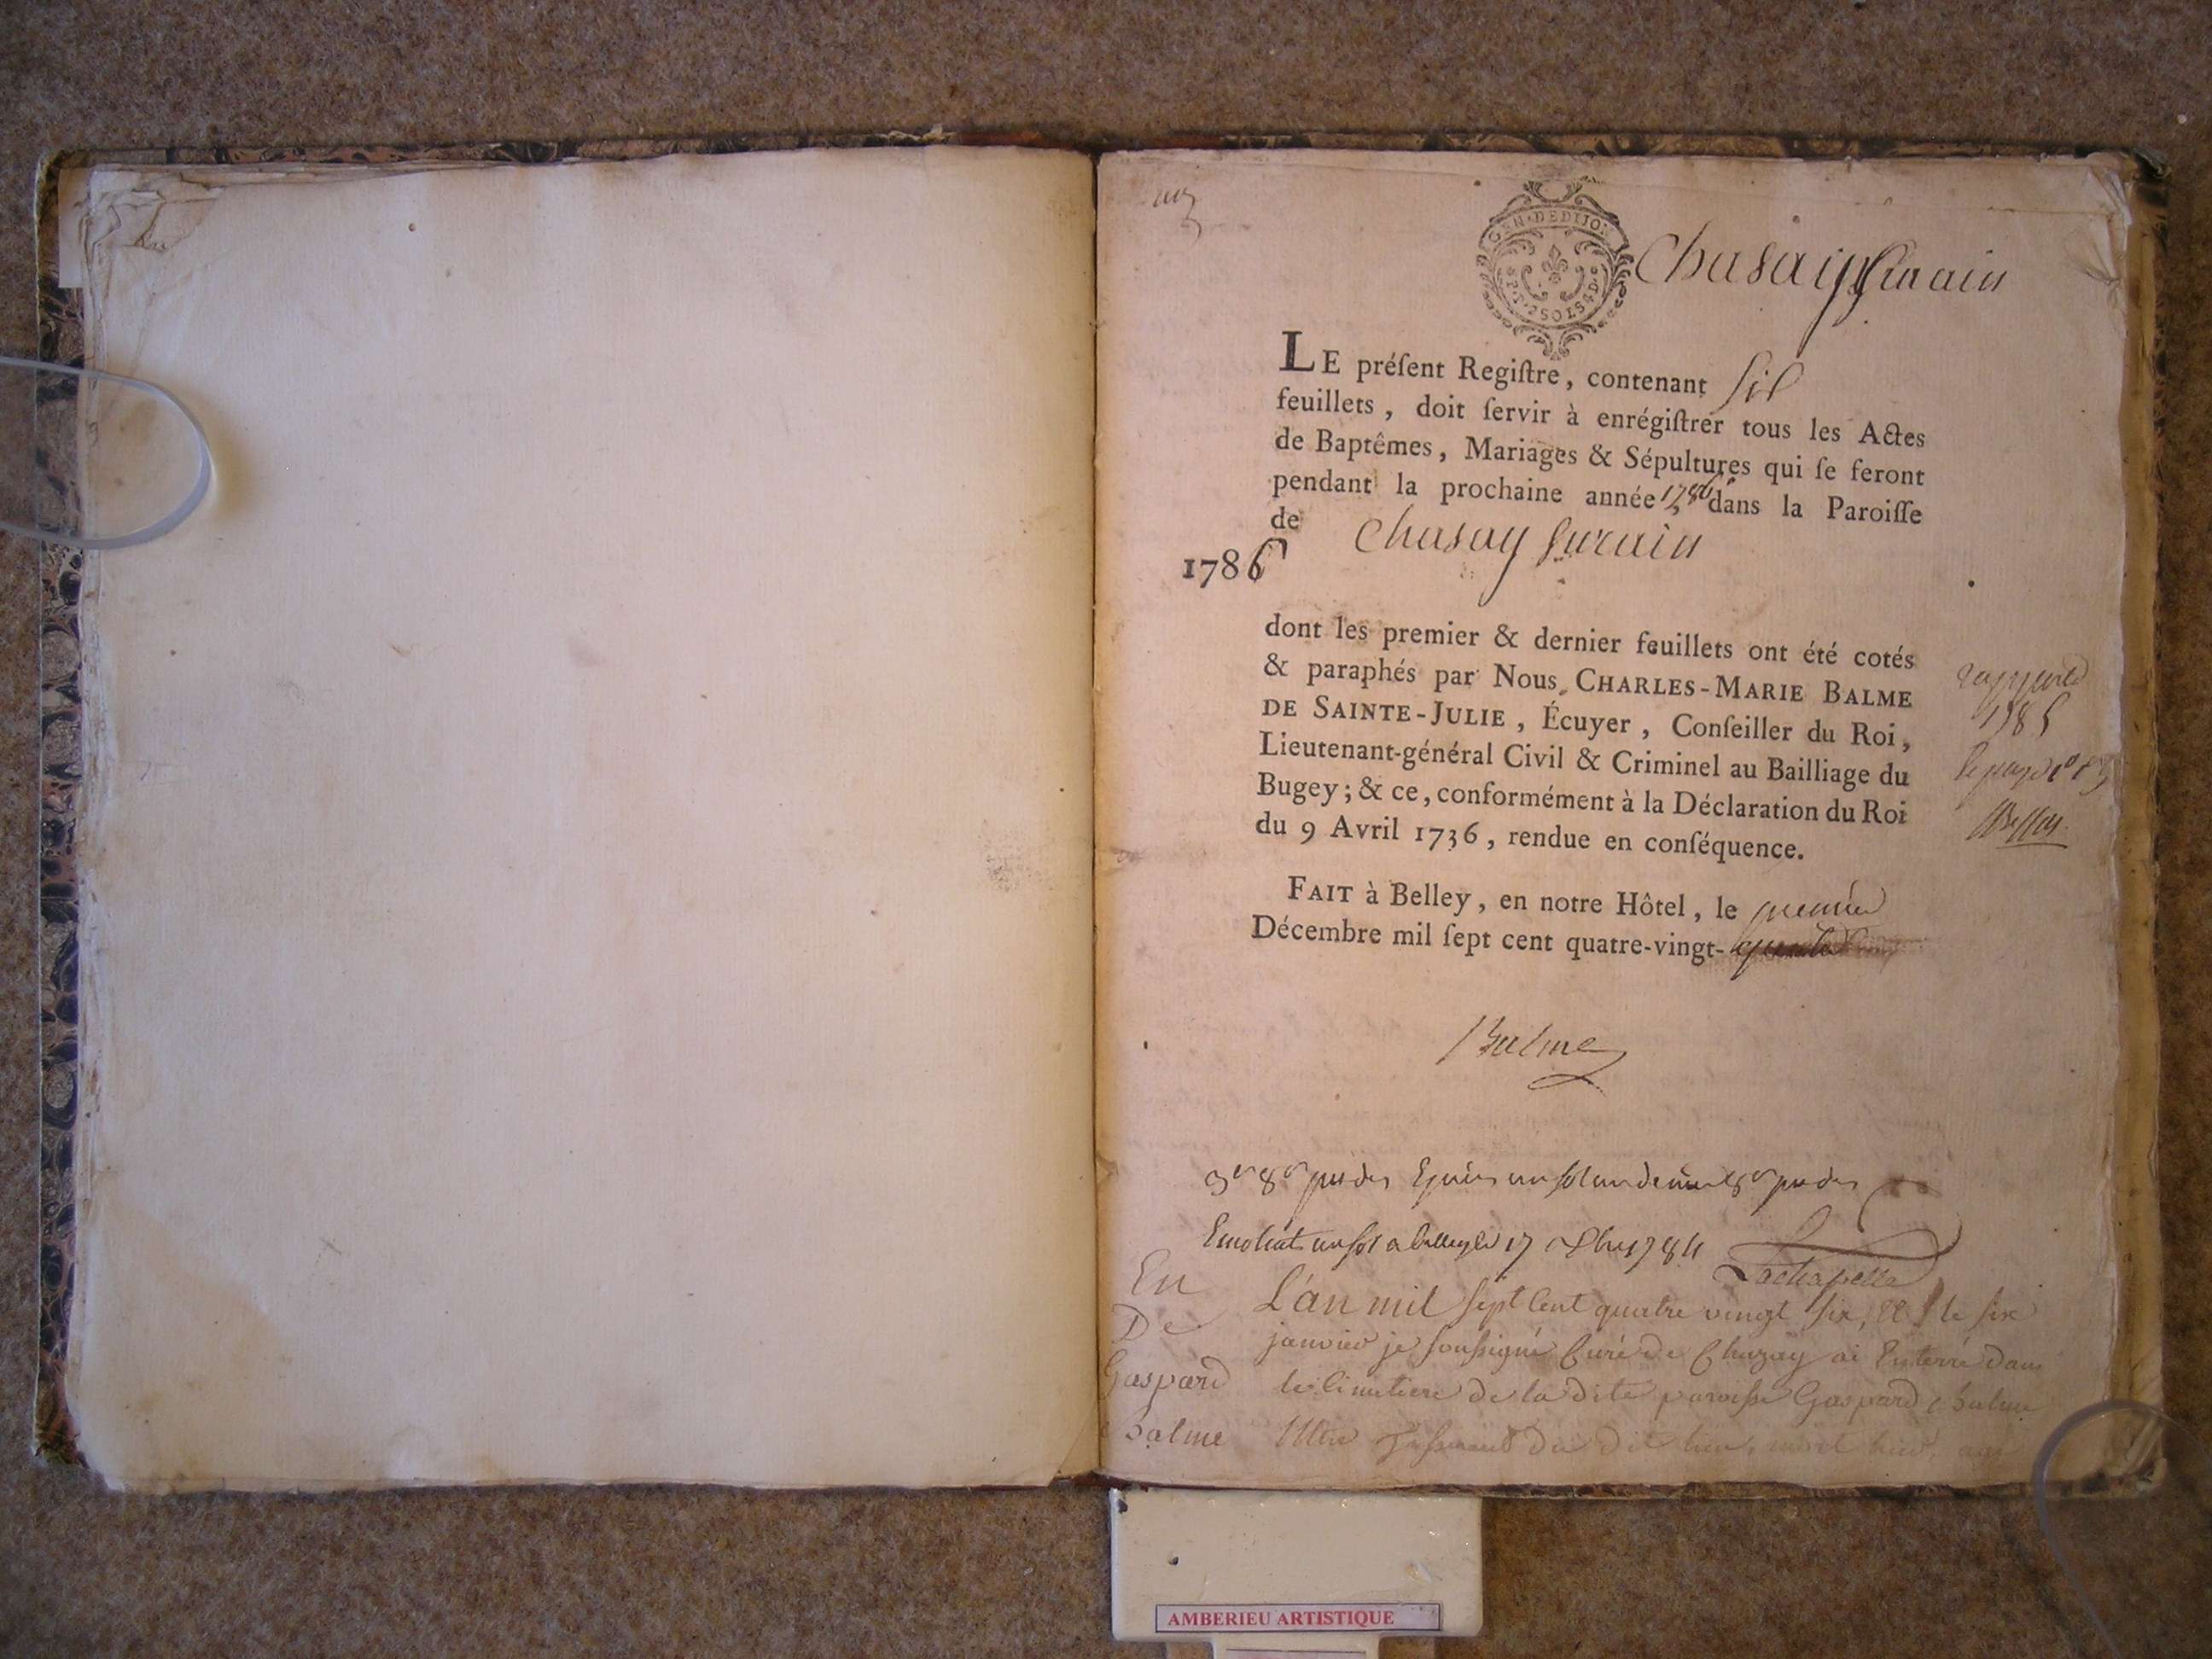 GEN·DE DIJON
2 SOLS 4 D
Chasay Surain
LE préſent Regiſtre, contenant six
feuillets, doit ſervir à enrégiſtrer tous les Actes
de Baptêmes, Mariages & Sépultures qui ſe feront
pendant la prochaine année 1786 dans la Paroiſſe
de Chasay Surain
1786
dont les premier & dernier feuillets ont été cotés
& paraphés par Nous, CHARLES-MARIE BALME
DE SAINTE-JULIE, Écuyer, Conſeiller du Roi,
Lieutenant-général Civil & Criminel au Bailliage du
Bugey; & ce, conformément à la Déclaration du Roi
du 9 Avril 1736, rendue en conſéquence.
rapporté
1785
FAIT à Belley, en notre Hôtel, le premier
Décembre mil ſept cent quatre-vingt-
Balme
a belley le 17
Lachapelle
En
De
Gaspard
Balme
L'an mil sept cent quatre vingt six, et le six
janvier je soussigné Curé de Chazay ai Enterré dans
le Cimetiere de la dite paroisse Gaspard Balme
du dit lieu, mort hier,
AMBERIEU ARTISTIQUE